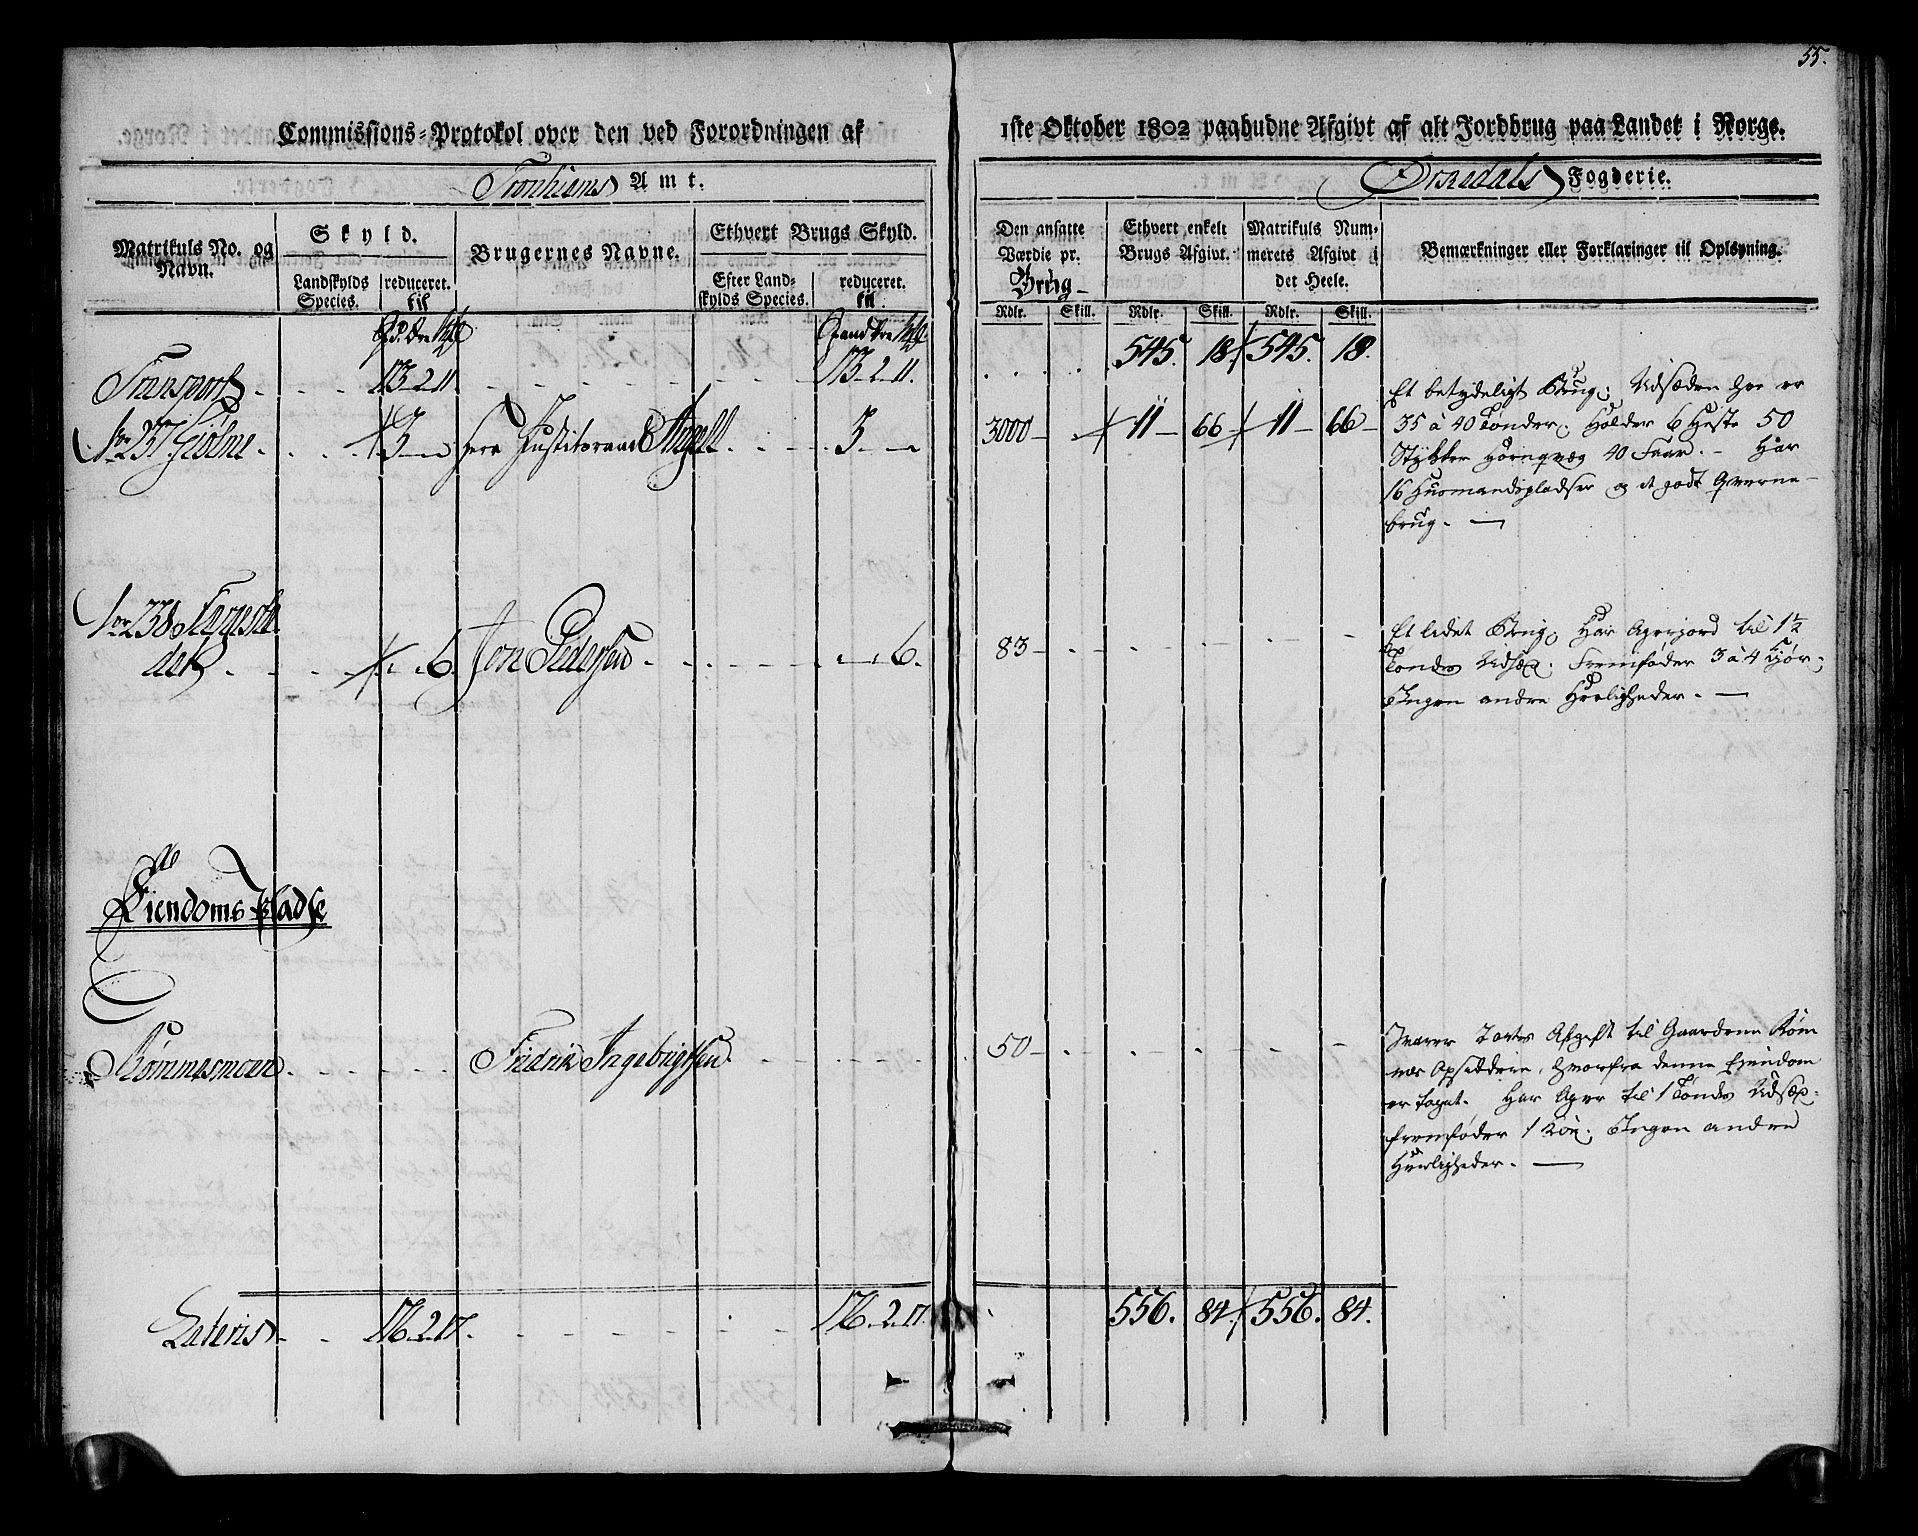 55.
Commissions-Protokol over den ved Forordningen af 1ste Oktober 1802 paabudne Afgivt af alt Jordbrug paa Landet i Norge.
Tronhiems Amt.
Orkedals Fogderie.
Matrikuls No. og Navn.
Skyld.
Landskylds Species.
reduceret. til
Brugernes Navne.
Ethvert Brugs Skyld.
Efter Landskylds Species.
reduceret. til
Den ansatte Værdie pr. Brug
Ethvert enkelt Brugs Afgivt.
Matrikuls Nummerets Afgivt i det Heele.
Bemærkninger eller Forklaringer til Oplysning.
Rdlr. Skill. Rdlr. Skill. Rdlr. Skill.
Transport 173.2.11. 173.2.11. 545. 18. 545. 18.
No 237 Giølme 3 Herr Justitsraad Angell 3 3000 11 66 11 66
Et betydeligt Brug; Udsæden her er
35 à 40 Tønder. Holder 6 Heste 50
Stykker Hornqvæg 40 Faar. Har
16 Huusmandspladser og et godt Qverne-
brug.
No 238
6. Jon Pedersen 6. 83
Et lidet Brug, Har Agerjord til 1½
Tønde Udsæd. Fremføder 3 à 4 Kjør;
Ingen andre Herligheder.
Eiendoms Pladse
Rømmesmoen Fridrik Ingebrigtsen 50
Svarer Afgift til Gaarden Røm
hvorfra denne Eiendom
er taget. Har Ager til 1 Tønde Udsæd.
fremføder 1 Koe; Ingen andre
Herligheder.
Lateris 176.2.17. 176.2.17. 556. 84. 556. 84.